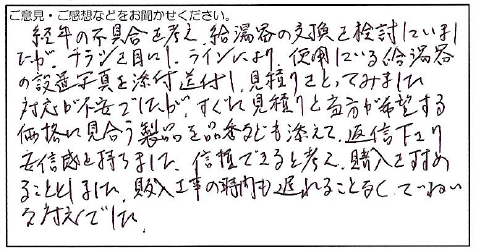 ご意見・ご感想などをお聞かせください。
経年の不具合を考え、給湯器の交換を検討していまし
たが、チラシを目にし、ラインにより、使用している給湯器
の設置写真を添付送付し、見積りをとってみました
対応が不安でしたが、すぐに見積りと当方が希望する
価格に見合う製品を品番なども添えて、返信下さり
安信感を持ちました。信頼できると考え、購入をすすめ
ることとしました。搬入工事の時間も遅れることなく、ていねい
な対応でした。